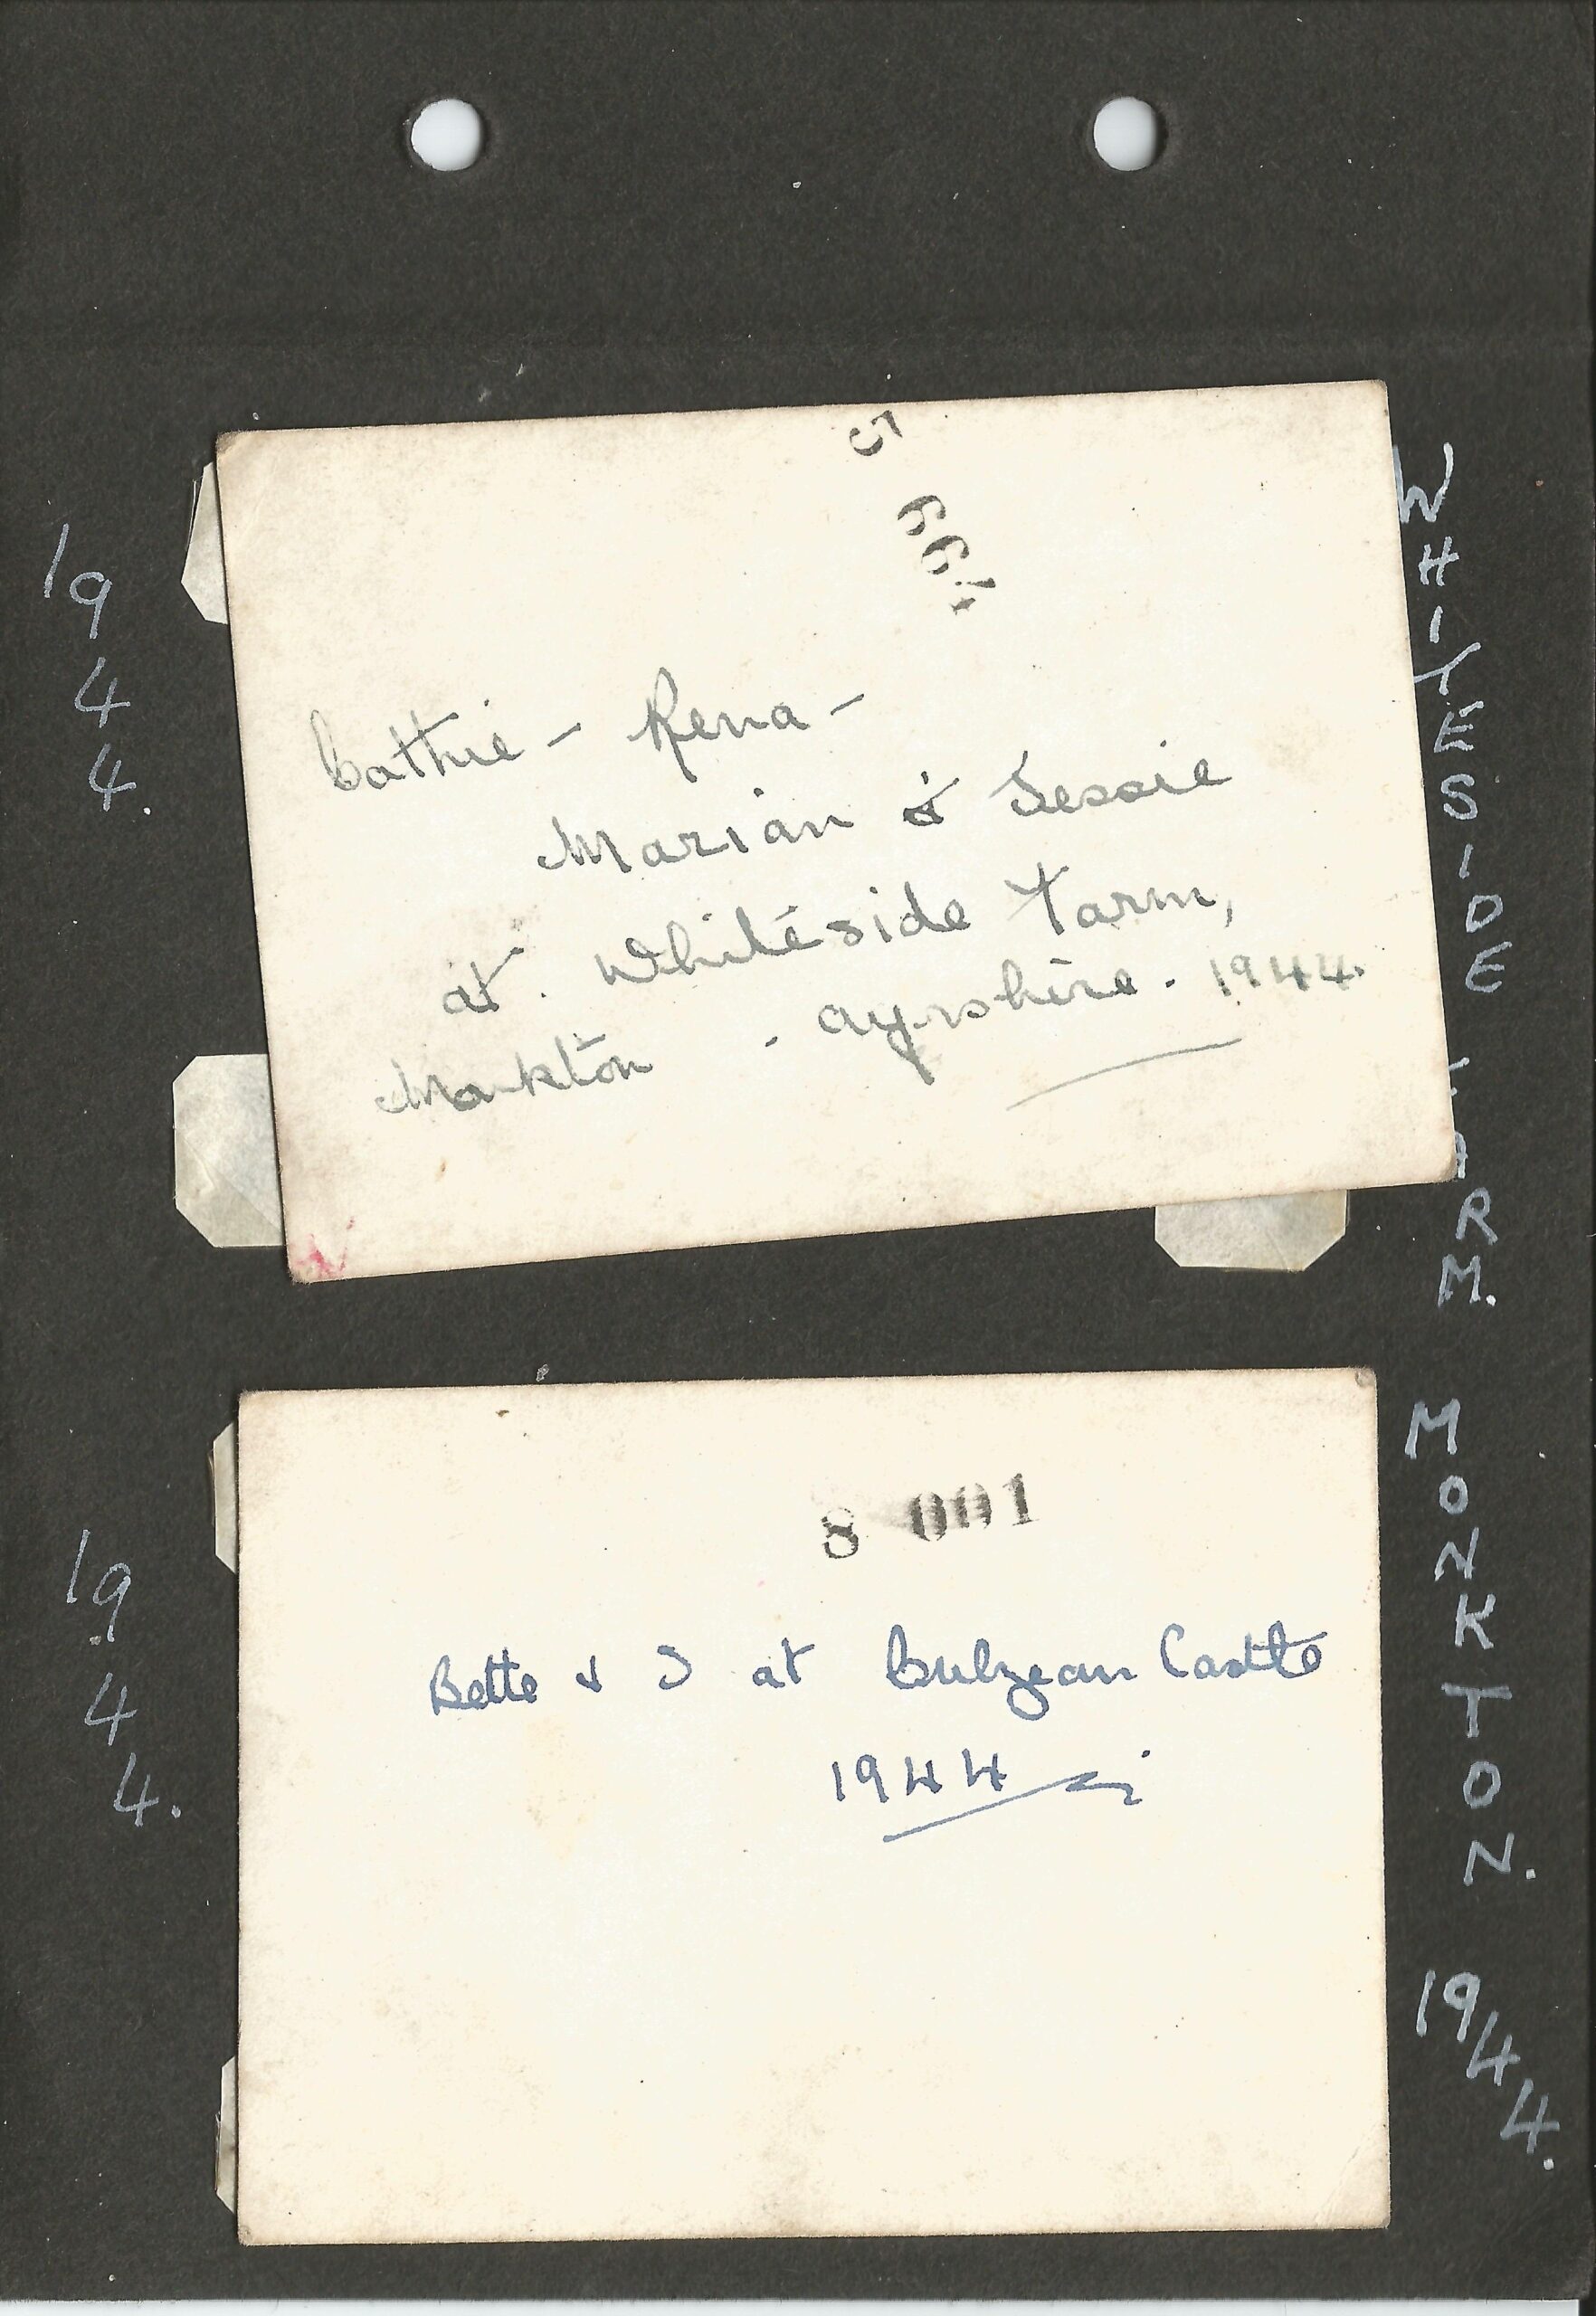 1944.
5 664
Cathie - Rena -
Marian & Jessie
at Whiteside Farm,
Monkton - Ayrshire. 1944.
WHITESIDE FARM.
1944.
8 001
Bette & I at Culzean Castle
1944
MONKTON. 1944.